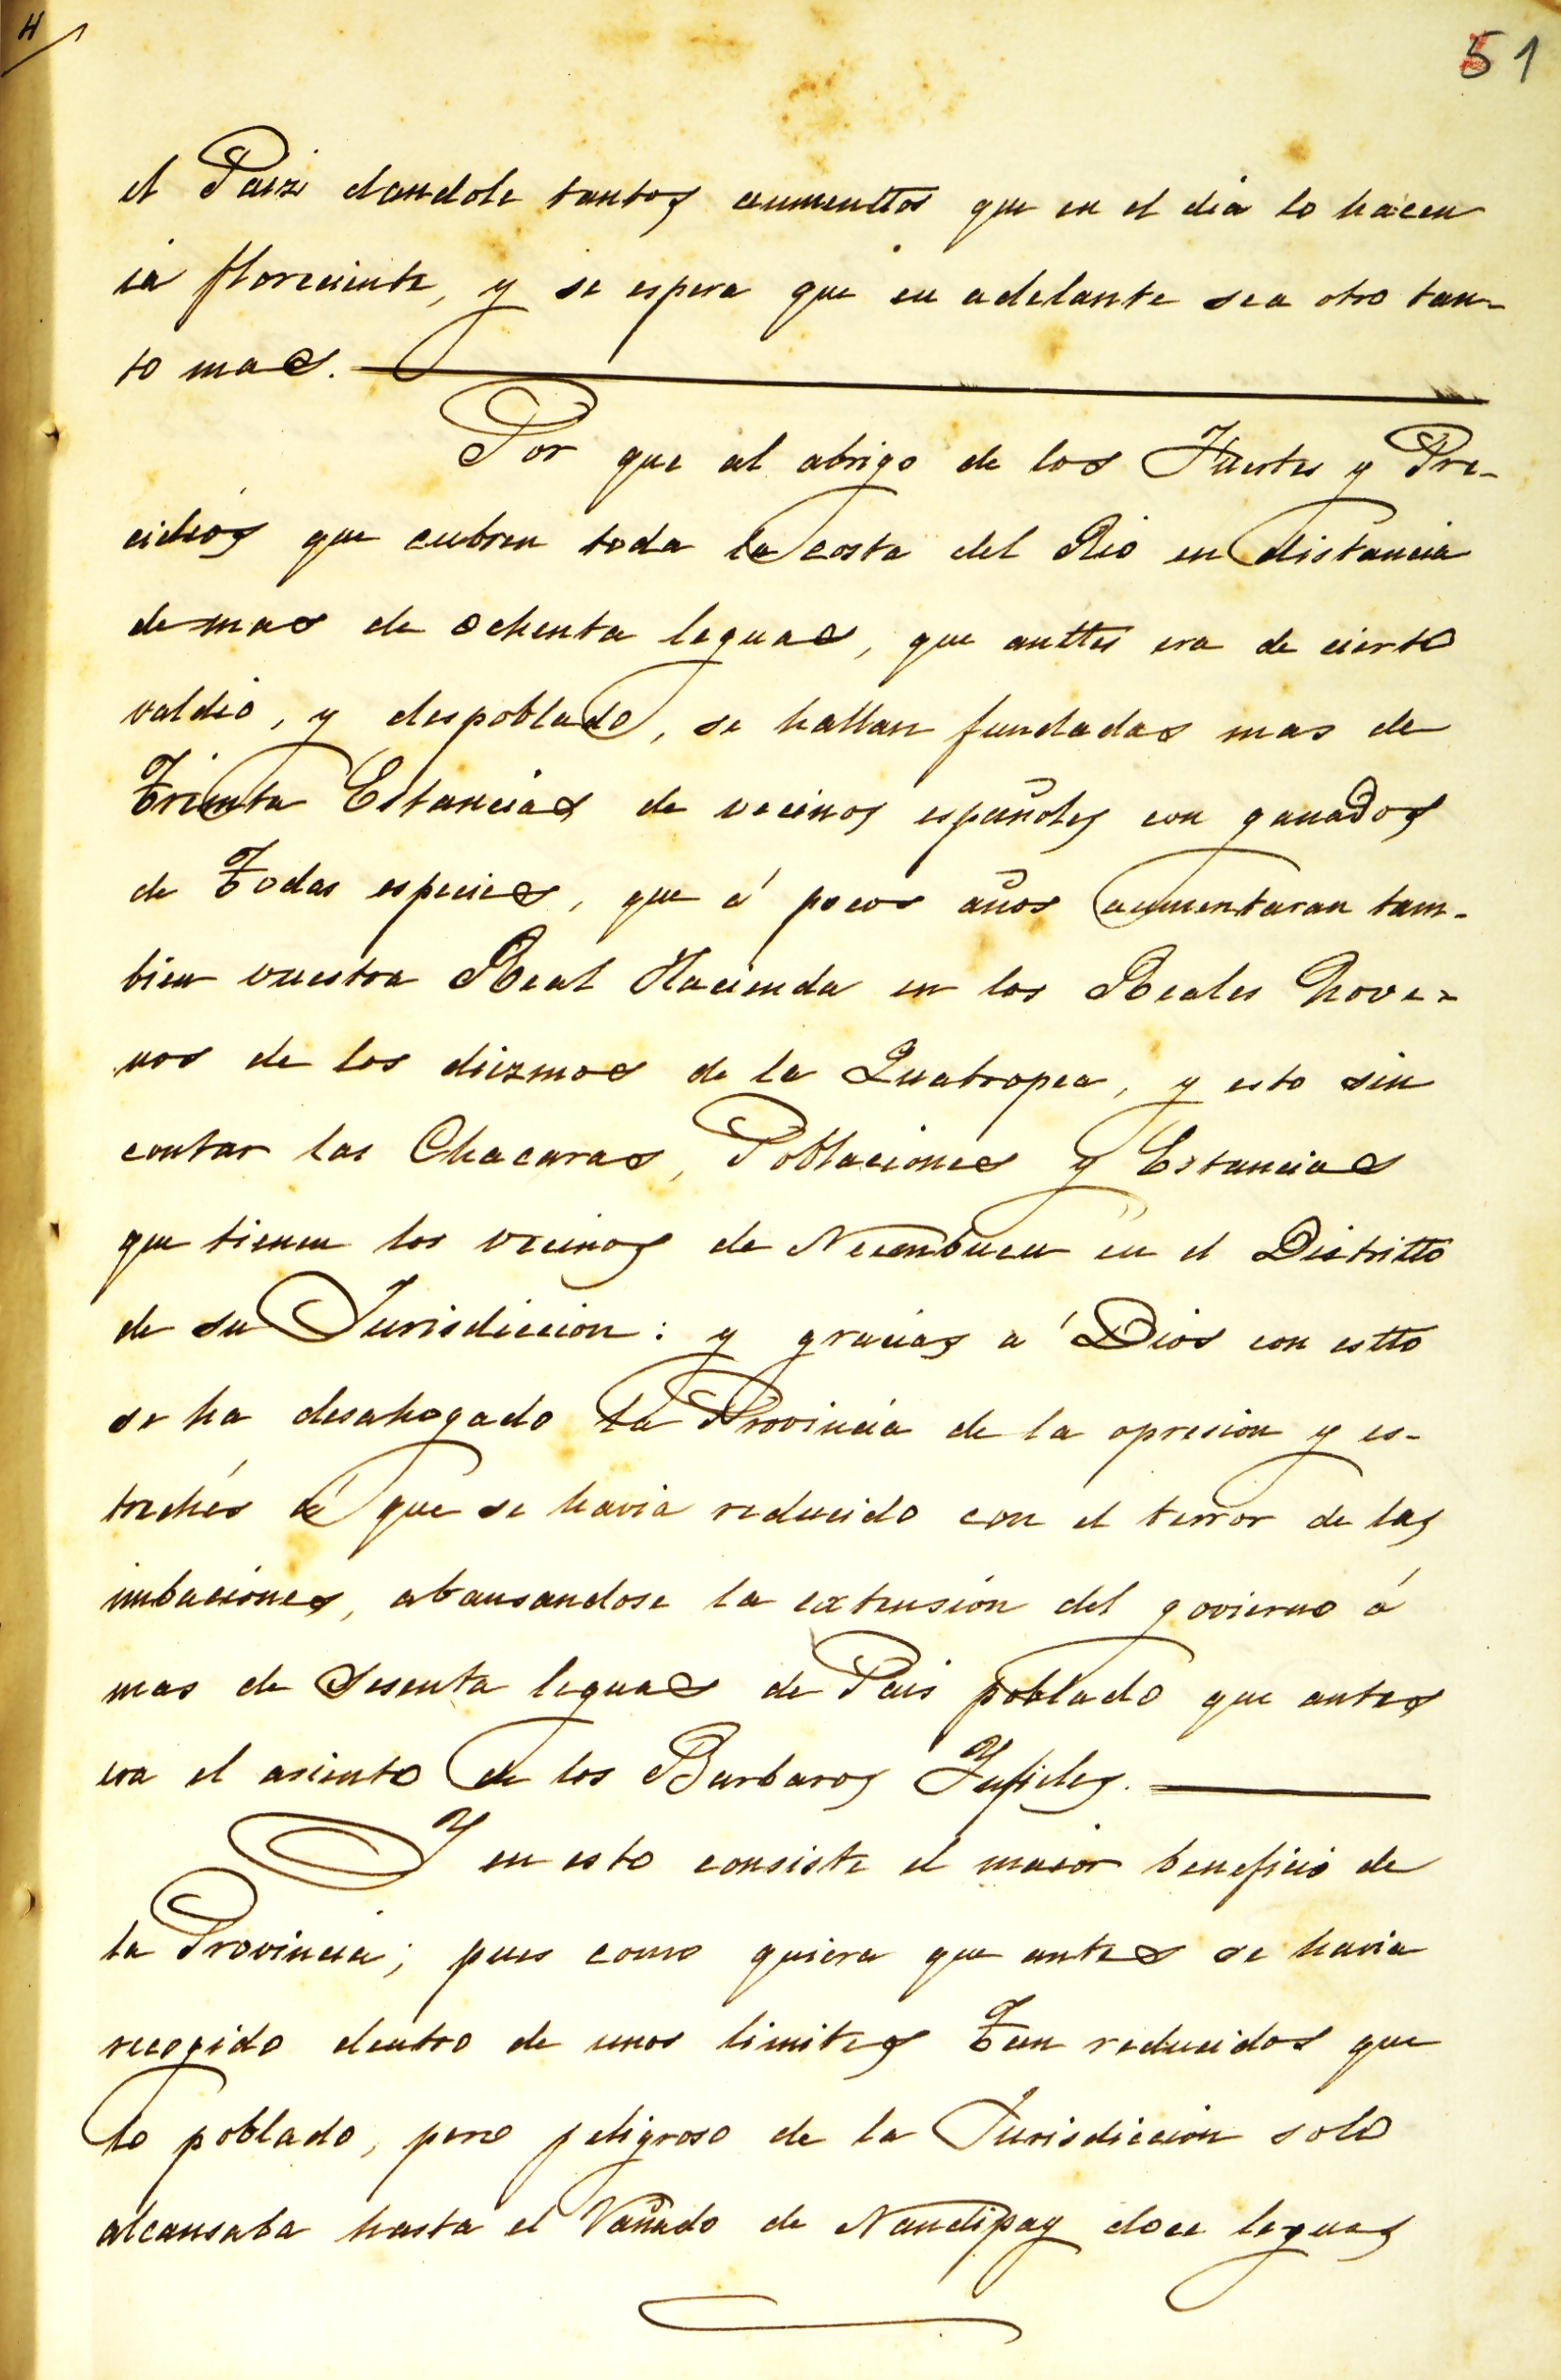 51
el Paiz dandole tantos aumenttos que en el dia lo hacen
ia floreciente, y se espera que en adelante sea otro tan-
to mas.
Por que al abrigo de los Fuertes y Pre-
cidios que cubren toda la costa del Rio en distancia
de mas de ochenta leguas, que anttes era de cierto
valdio, y despoblado, se hallan fundadas mas de
Treinta Estancias de vecinos españoles con ganados
de Todas especies, que á pocos años aumentaran tam-
bien vuestra Real Hacienda en los Reales Nove-
nos de los diezmos de la Quatropea, y esto sin
contar las Chacaras, Poblaciones y Estancias
que tienen los vecinos de Neembucu en el Distritto
de su Jurisdiccion: y gracias a Dios con estto
se ha desahogado la Provincia de la opresion y es-
trechés á que se havia reducido con el terror de las
imbaciones, abansandose la extension del govierno á
mas de sesenta leguas de Pais poblado que antes
era el asiento de los Barbaros Ynfieles.
Y en esto consiste el maior beneficio de
la Provincia; pues como quiera que antes se havia
recogido dentro de unos limites Tan reducidos que
lo poblado, pero peligroso de la Jurisdiccion solo
alcansaba hasta el Vañado de Nandipay doce leguas